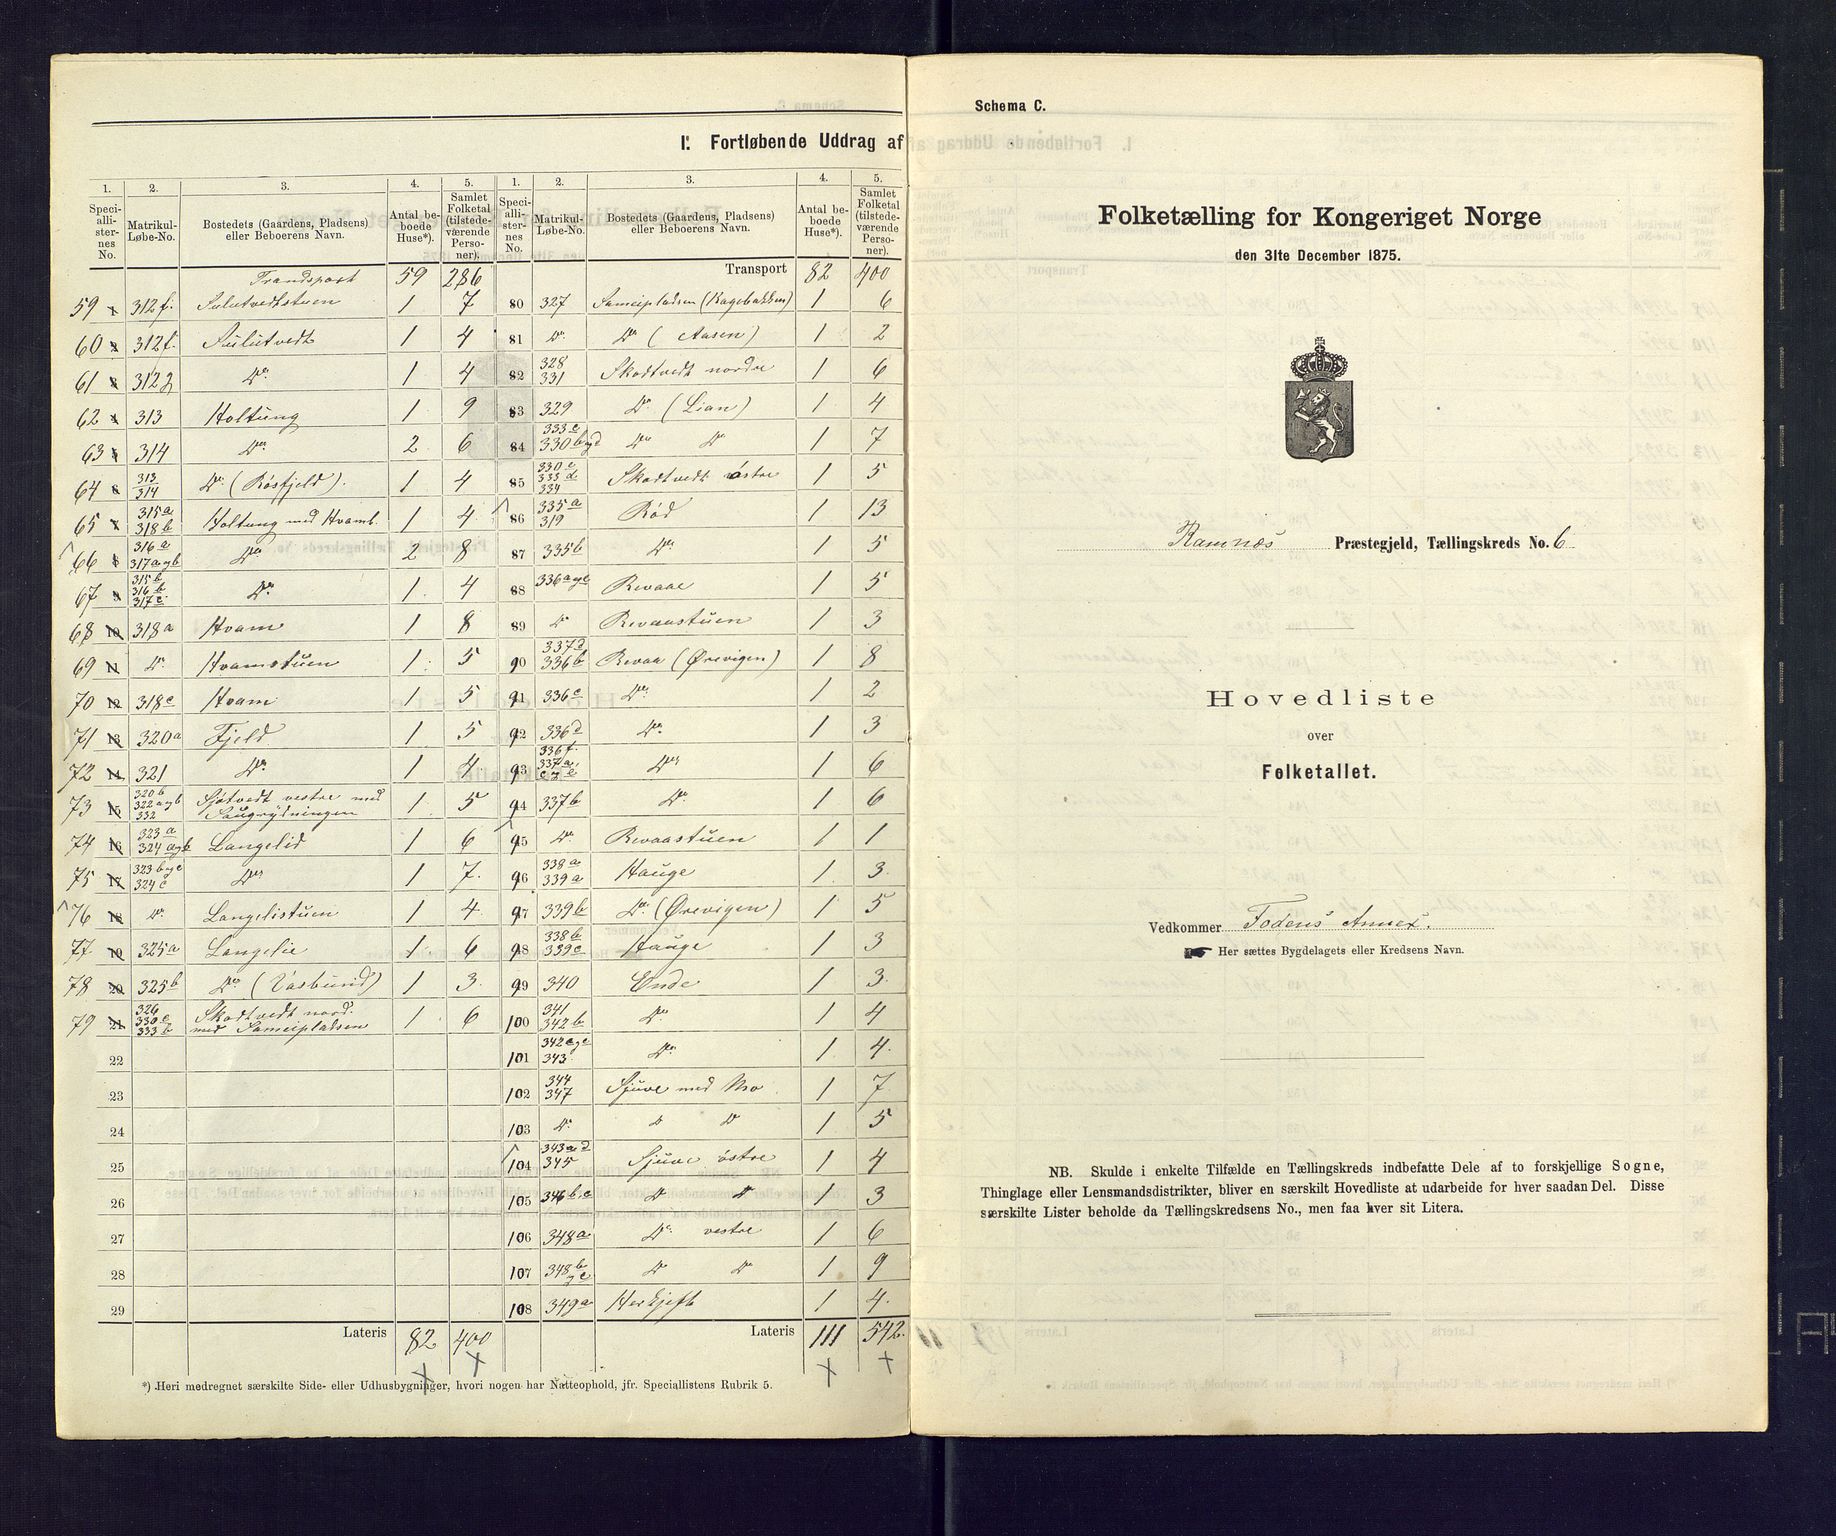 I. Fortløbende Uddrag af
1. 2. 3. 4. 5. 1. 2. 3. 4. 5.
Speciallisternes No. Matrikul-Løbe-No. Bostedets (Gaardens, Pladsens) eller Beboerens Navn. Antal beboede Huse*). Samlet Folketal (tilstedeværende Personer). Speciallisternes No. Matrikul-Løbe-No. Bostedets (Gaardens, Pladsens) eller Beboerens Navn. Antal beboede Huse*). Samlet Folketal (tilstedeværende Personer).
Trandsport 59 286
59 312f. 1 7
60 312f. 1 4
61 312g Do 1 4
62 313 Holtung 1 9
63 314 Do 2 6
64 313 314 Do (Røsfjeld). 1 4
65 315a 318b Holtung med Hvamb. 1 4
66 316a 317a og b Do 2 8
67 315b 316b 317c Do 1 4
68 318a Hvam 1 8
69 Do Hvamstuen 1 5
70 318c Hvam 1 5
71 320a Fjeld 1 5
72 321 Do 1 4
73 320b 322a og b 332 Sjøtvedt vestre med Haugrydningen 1 5
74 323a 324a og b Langelid 1 6
75 323b og c 324c Do 1 7.
76 Do Langelistuen 1 4
77 325a Langelie 1 6
78 325b Do (Vasbund) 1 3.
79 326 330c 333b Skodtvedt nord. med Sameipladsen 1 6
22
23
24
25
26
27
28
29
Lateris 82 400
Transport 82 400
80 327 Sameipladsen (Kagebakken) 1 6
81 Do Do (Aasen) 1 2
82 328 331 Skodtvedt nordre 1 6
83 329 Do (Lian) 1 4
84 333c 330b og d Do Do 1 7
85 330e 333d 334 Skodtvedt østre 1 5
86 335a 319 Rød 1 13
87 335b Do 1 5
88 336a og e Revaae 1 5
89 Do Revaastuen 1 3
90 337d 336b Revaa (Ørevigen) 1 8
91 336c Do 1 2
92 336d Do 1 3
93 336f. 337a, c og e Do 1 6
94 337b Do 1 6
95 Do Revaastuen 1 1
96 338a 339a Hauge 1 3.
97 339b Do (Ørevigen) 1 5
98 338b 339c Hauge 1 3
99 340 Ende 1 3.
100 341 342b Do 1 4
101 342a og c 343 Do 1 4.
102 344 347 Sjuve med Mo 1 7
103 Do D D 1 5
104 343a og d 345 Sjuve østre 1 4
105 346b.c D D 1 3
106 348a Do vestre 1 6
107 348b og c D D 1 9
108 349a Herkjeft 1 4.
Lateris 111 542.
*) Heri medregnet særskilte Side- eller Udhusbygninger, hvori nogen har Natteophold, jfr. Speciallistens Rubrik 5.
Schema C.
Folketælling for Kongeriget Norge
den 31te December 1875.
Ramnæs Præstegjeld, Tællingskreds No. 6
Hovedliste
over
Folketallet.
Vedkommer Fodens Annex.
Her sættes Bygdelagets eller Kredsens Navn.
NB. Skulde i enkelte Tilfælde en Tællingskreds indbefatte Dele af to forskjellige Sogne,
Thinglage eller Lensmandsdistrikter, bliver en særskilt Hovedliste at udarbeide for hver saadan Del. Disse
særskilte Lister beholde da Tællingskredsens No., men faa hver sit Litera.